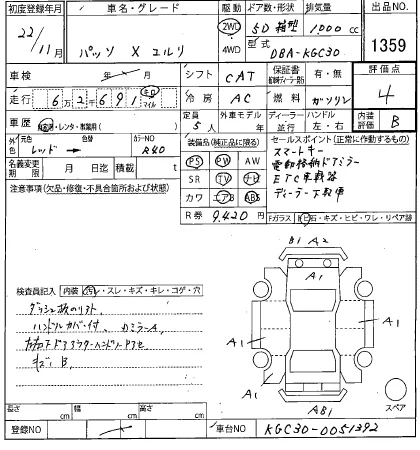 初度登録年月 車名・グレード 駆動 ドア数・形状 排気量 出品NO
22/11月 パッソ X ユルリ 2WD 4WD 5D 箱型 1000cc 1359
型式 DBA-KGC30
車検 年 月 シフト CAT 保証書 有・無 評価点 4
走行 6万2千691 キロ マイル 冷房 AC 燃料 ガソリン
車歴 自家用・レンタ・事業用( ) 定員 5人 外車モデル 年 ディーラー 並行 ハンドル 左・右 内装評価 B
外色 元色 レッド → 色替 カラーNO R40
装備品(純正品に限る) セールスポイント(正常に動作するもの)
PS PW AW スマートキー
名義変更期限 月 日迄 積載 t SR TV ナビ 電動格納ドアミラー
カワ エアB ABS ETC車載器
ディーラー下取車
注意事項(欠品・修復・不具合箇所および状態)
R券 9,420円 Fガラス 飛石・キズ・ヒビ・ワレ・リペア跡
B1 A2
A1
検査員記入 内装 汚レ・スレ・キズ・キレ・コゲ・穴
A1 A1
ハンドルカバー付
キズB
A1 A1
AB1 スペア
長さ cm 幅 cm 高さ cm
登録NO 車台NO KGC30-0051392